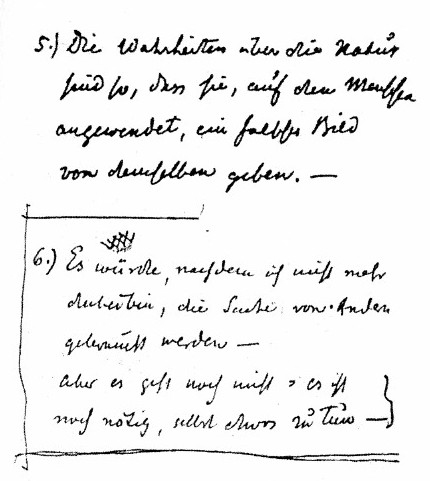 5.) Die Wahrheiten über die Natur
sind so, dass sie, auf den Menschen
angewendet, ein falsches Bild
von demselben geben. —
6.) Es würde, nachdem ich nicht mehr
dabei bin, die Sache von Andern
gebraucht werden —
aber es geht noch nicht = es ist
noch nötig, selbst etwas zu tun —